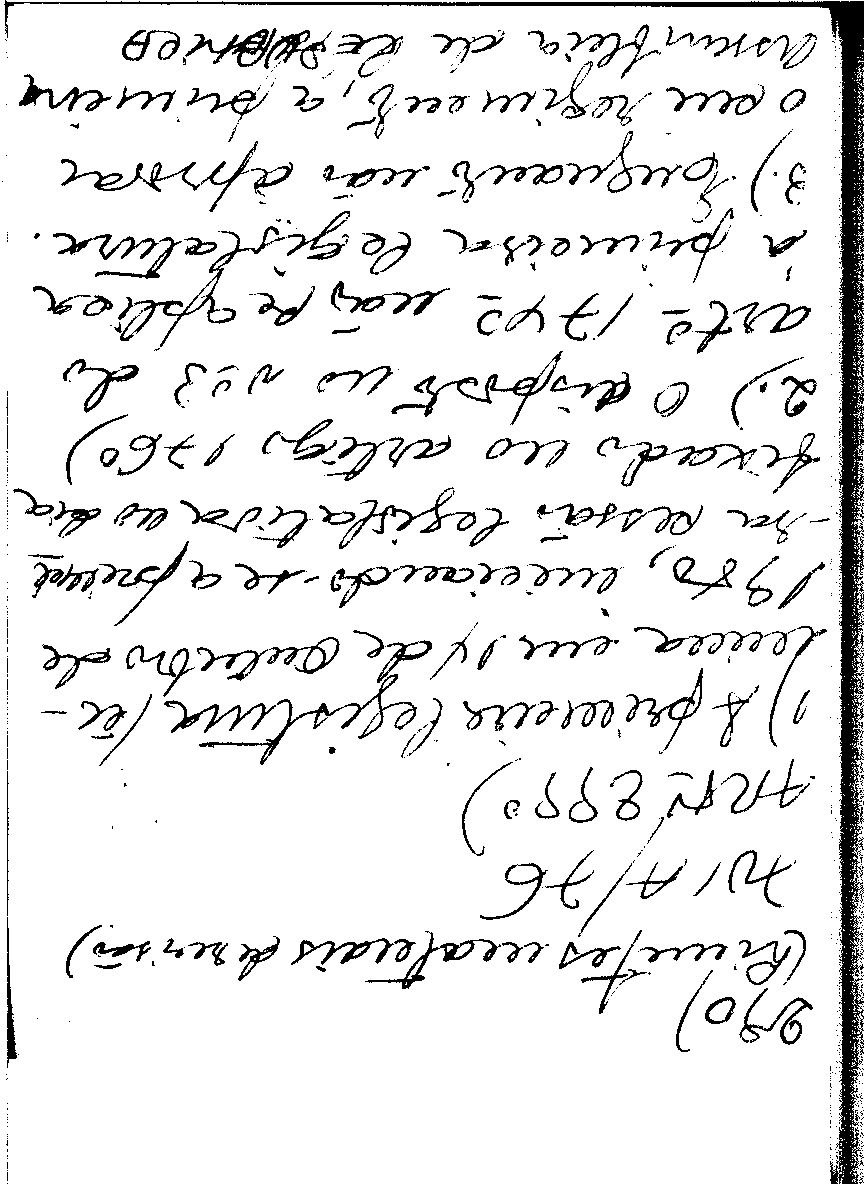 290)
(Limites materiais de revisão)
ART 299º)
1) A primeira legislatura ter-
mina em 14 de Outubro de
1980, iniciando-se a primei-
-ra sessão legislativa no dia
fixado no artigo 176º)
2.) O disposto no nº 3 do
artº 174º não se aplica
à primeira legislatura.
3.) Enquanto não aprovar
o seu regimento, a primeira
Assembleia da